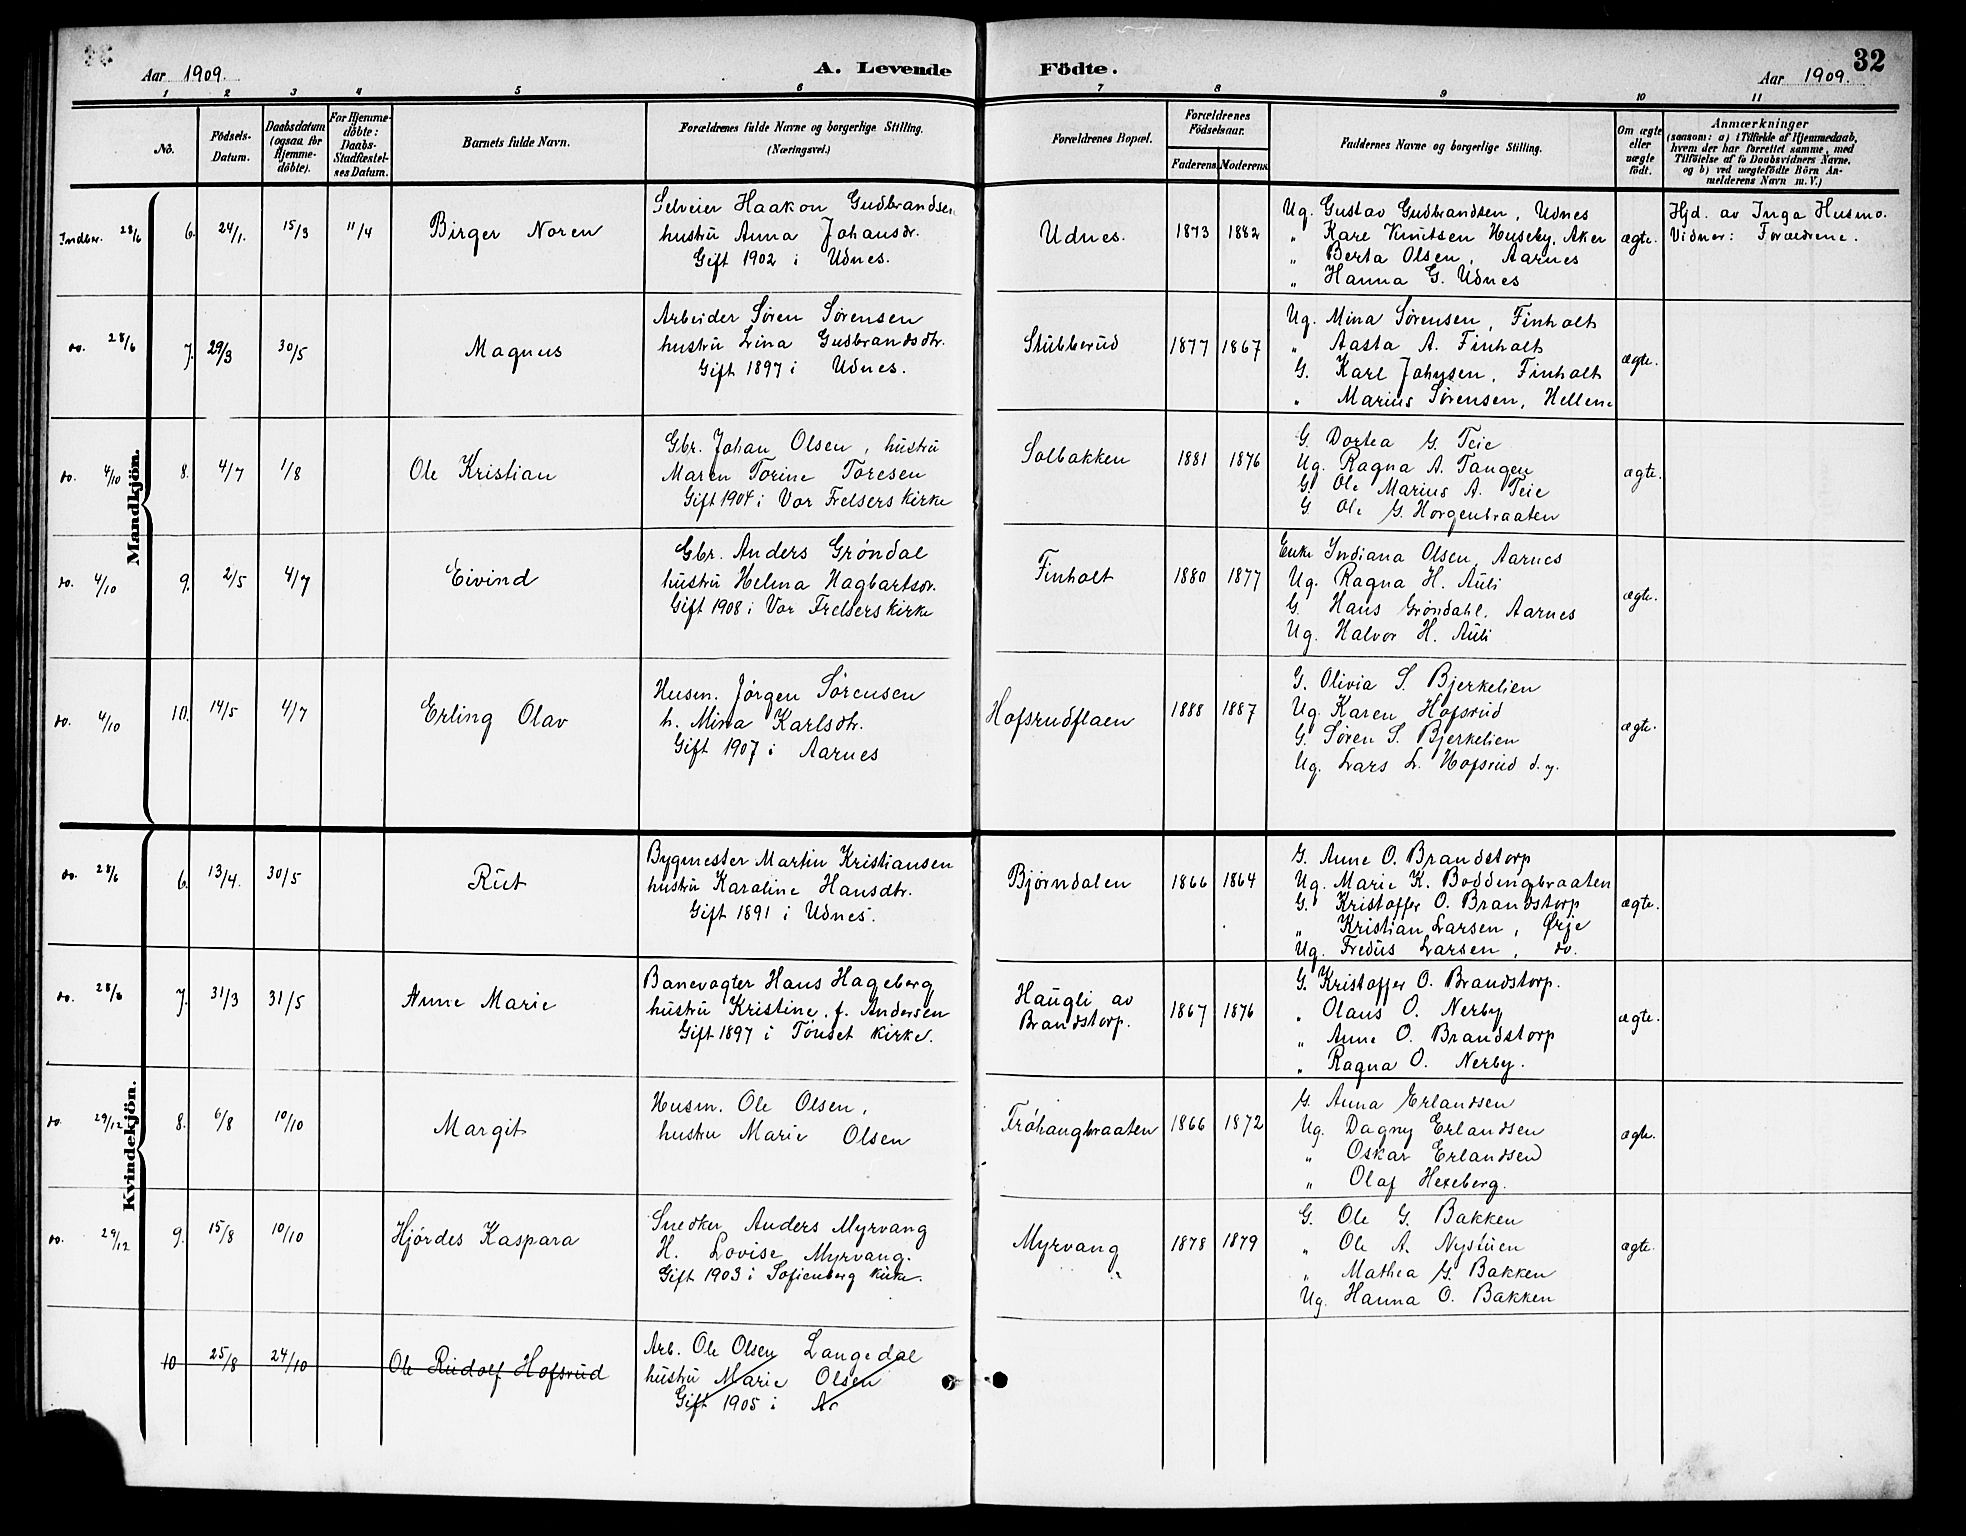 Aar 1909.
A. Levende
Födte.
32
Aar 1909.
1 2 3 4 5 6 7 8 9 10 11
No.
Födsels-
Datum.
Daabsdatum
(ogsaa for
Hjemme-
døbte).
For Hjemme-
döbte:
Daabs-
Stadfæstel-
ses Datum.
Barnets fulde Navn.
Forældrenes fulde Navne og borgerlige Stilling.
(Næringsvei.)
Forældrenes Bopæl.
Forældrenes
Födselsaar.
Faderens. Moderens.
Faddernes Navne og borgerlige Stilling.
Om ægte
eller
uægte
födt.
Anmærkninger
(saasom: a) i Tilfælde af Hjemmedaab,
hvem der har forrettet samme, med
Tilföielse af to Daabsvidners Navne,
og b) ved uægtefödte Börn An-
melderens Navn m. V.)
Mandkjön.
Indber. 28/6 6. 24/1. 15/3 11/4 Birger Noren
Selveier Haakon Gudbrandsen
hustru Anna Johansdr.
Gift 1902 i Udnes.
Udnes. 1873 1882
Ug. Gustav Gudbrandsen, Udnes
„ Karl Knutsen Huseby, Aker
„ Berta Olsen, Aarnes
„ Hanna G. Udnes
ægte.
Hjd. av Inga Husmo.
Vidner: Forældrene.
do. 28/6 7. 29/3 30/5 Magnus
Arbeider Søren Sørensen
hustru Lina Gudbrandsdtr.
Gift 1897 i Udnes.
Stubberud 1877 1867
Ug. Mina Sørensen, Finholt
„ Aasta A. Finholt
G. Karl Johnsen, Finholt
„ Marius Sørensen, Hellene
ægte.
do. 4/10 8. 4/7 1/8 Ole Kristian
Gbr. Johan Olsen, hustru
Maren Torine Toresen
Gift 1904 i Vor Frelsers kirke
Solbakken 1881 1876
G. Dortea G. Teie
Ug. Ragna A. Tangen
G. Ole Marius A. Teie
G. Ole G. Horgenbraaten
ægte.
do. 4/10 9. 2/5 4/7 Eivind
Gbr. Anders Grøndal
hustru Helma Hagbartsdr.
Gift 1908 i Vor Frelsers kirke
Finholt 1880 1877
Enke Indiana Olsen, Aarnes
Ug. Ragna H. Auli
G. Hans Grøndahl, Aarnes
Ug. Halvor H. Auli
ægte.
do. 4/10 10. 14/5 4/7 Erling Olav
Husm. Jörgen Sørensen
h. Mina Karlsdtr.
Gift 1907 i Aarnes
Hofsrudflaen 1888 1887
G. Olivia S. Bjerkelien
Ug. Karen Hofsrud
G. Søren S. Bjerkelien
Ug. Lars L. Hofsrud d.y.
ægte.
Kvindekjön.
do. 28/6 6. 13/4. 30/5 Rut
Bygmester Martin Kristiansen
hustru Karoline Hansdtr.
Gift 1891 i Udnes.
Bjørndalen 1866 1864
G. Anne O. Brandstorp
Ug. Marie K. Boddingbraaten
G. Kristoffer O. Brandstorp
„ Kristian Larsen, Ørje
Ug. Fredus Larsen, do.
ægte.
do. 28/6 7. 31/3 31/5 Anne Marie
Banevogter Hans Hageberg
hustru Kristine, f. Andersen
Gift 1897 i Tönset kirke.
Haugli av
Brandstorp. 1867 1876
G. Kristoffer O. Brandstorp.
„ Olaus O. Nerby
„ Anne O. Brandstorp
„ Ragna O. Nerby.
ægte.
do. 29/12 8. 6/8 10/10 Margit
Husm. Ole Olsen,
hustru Marie Olsen
Fröhaugbraaten 1866 1872
G. Anna Erlandsen
Ug. Dagny Erlandsen
„ Oskar Erlandsen
„ Olaf Hexeberg.
ægte.
do. 29/12 9. 15/8 10/10 Hjördes Kaspara
Snedker Anders Myrvang
H. Lovise Myrvang.
Gift 1903 i Sofienberg kirke.
Myrvang 1878 1879
G. Ole G. Bakken
„ Ole A. Nystuen
„ Mathea G. Bakken
Ug. Hanna O. Bakken
ægte.
10 25/8 24/10 Ole Rudolf Hofsrud
Arb. Ole Olsen Langedal
hustru Marie Olsen
Gift 1905 i Ar